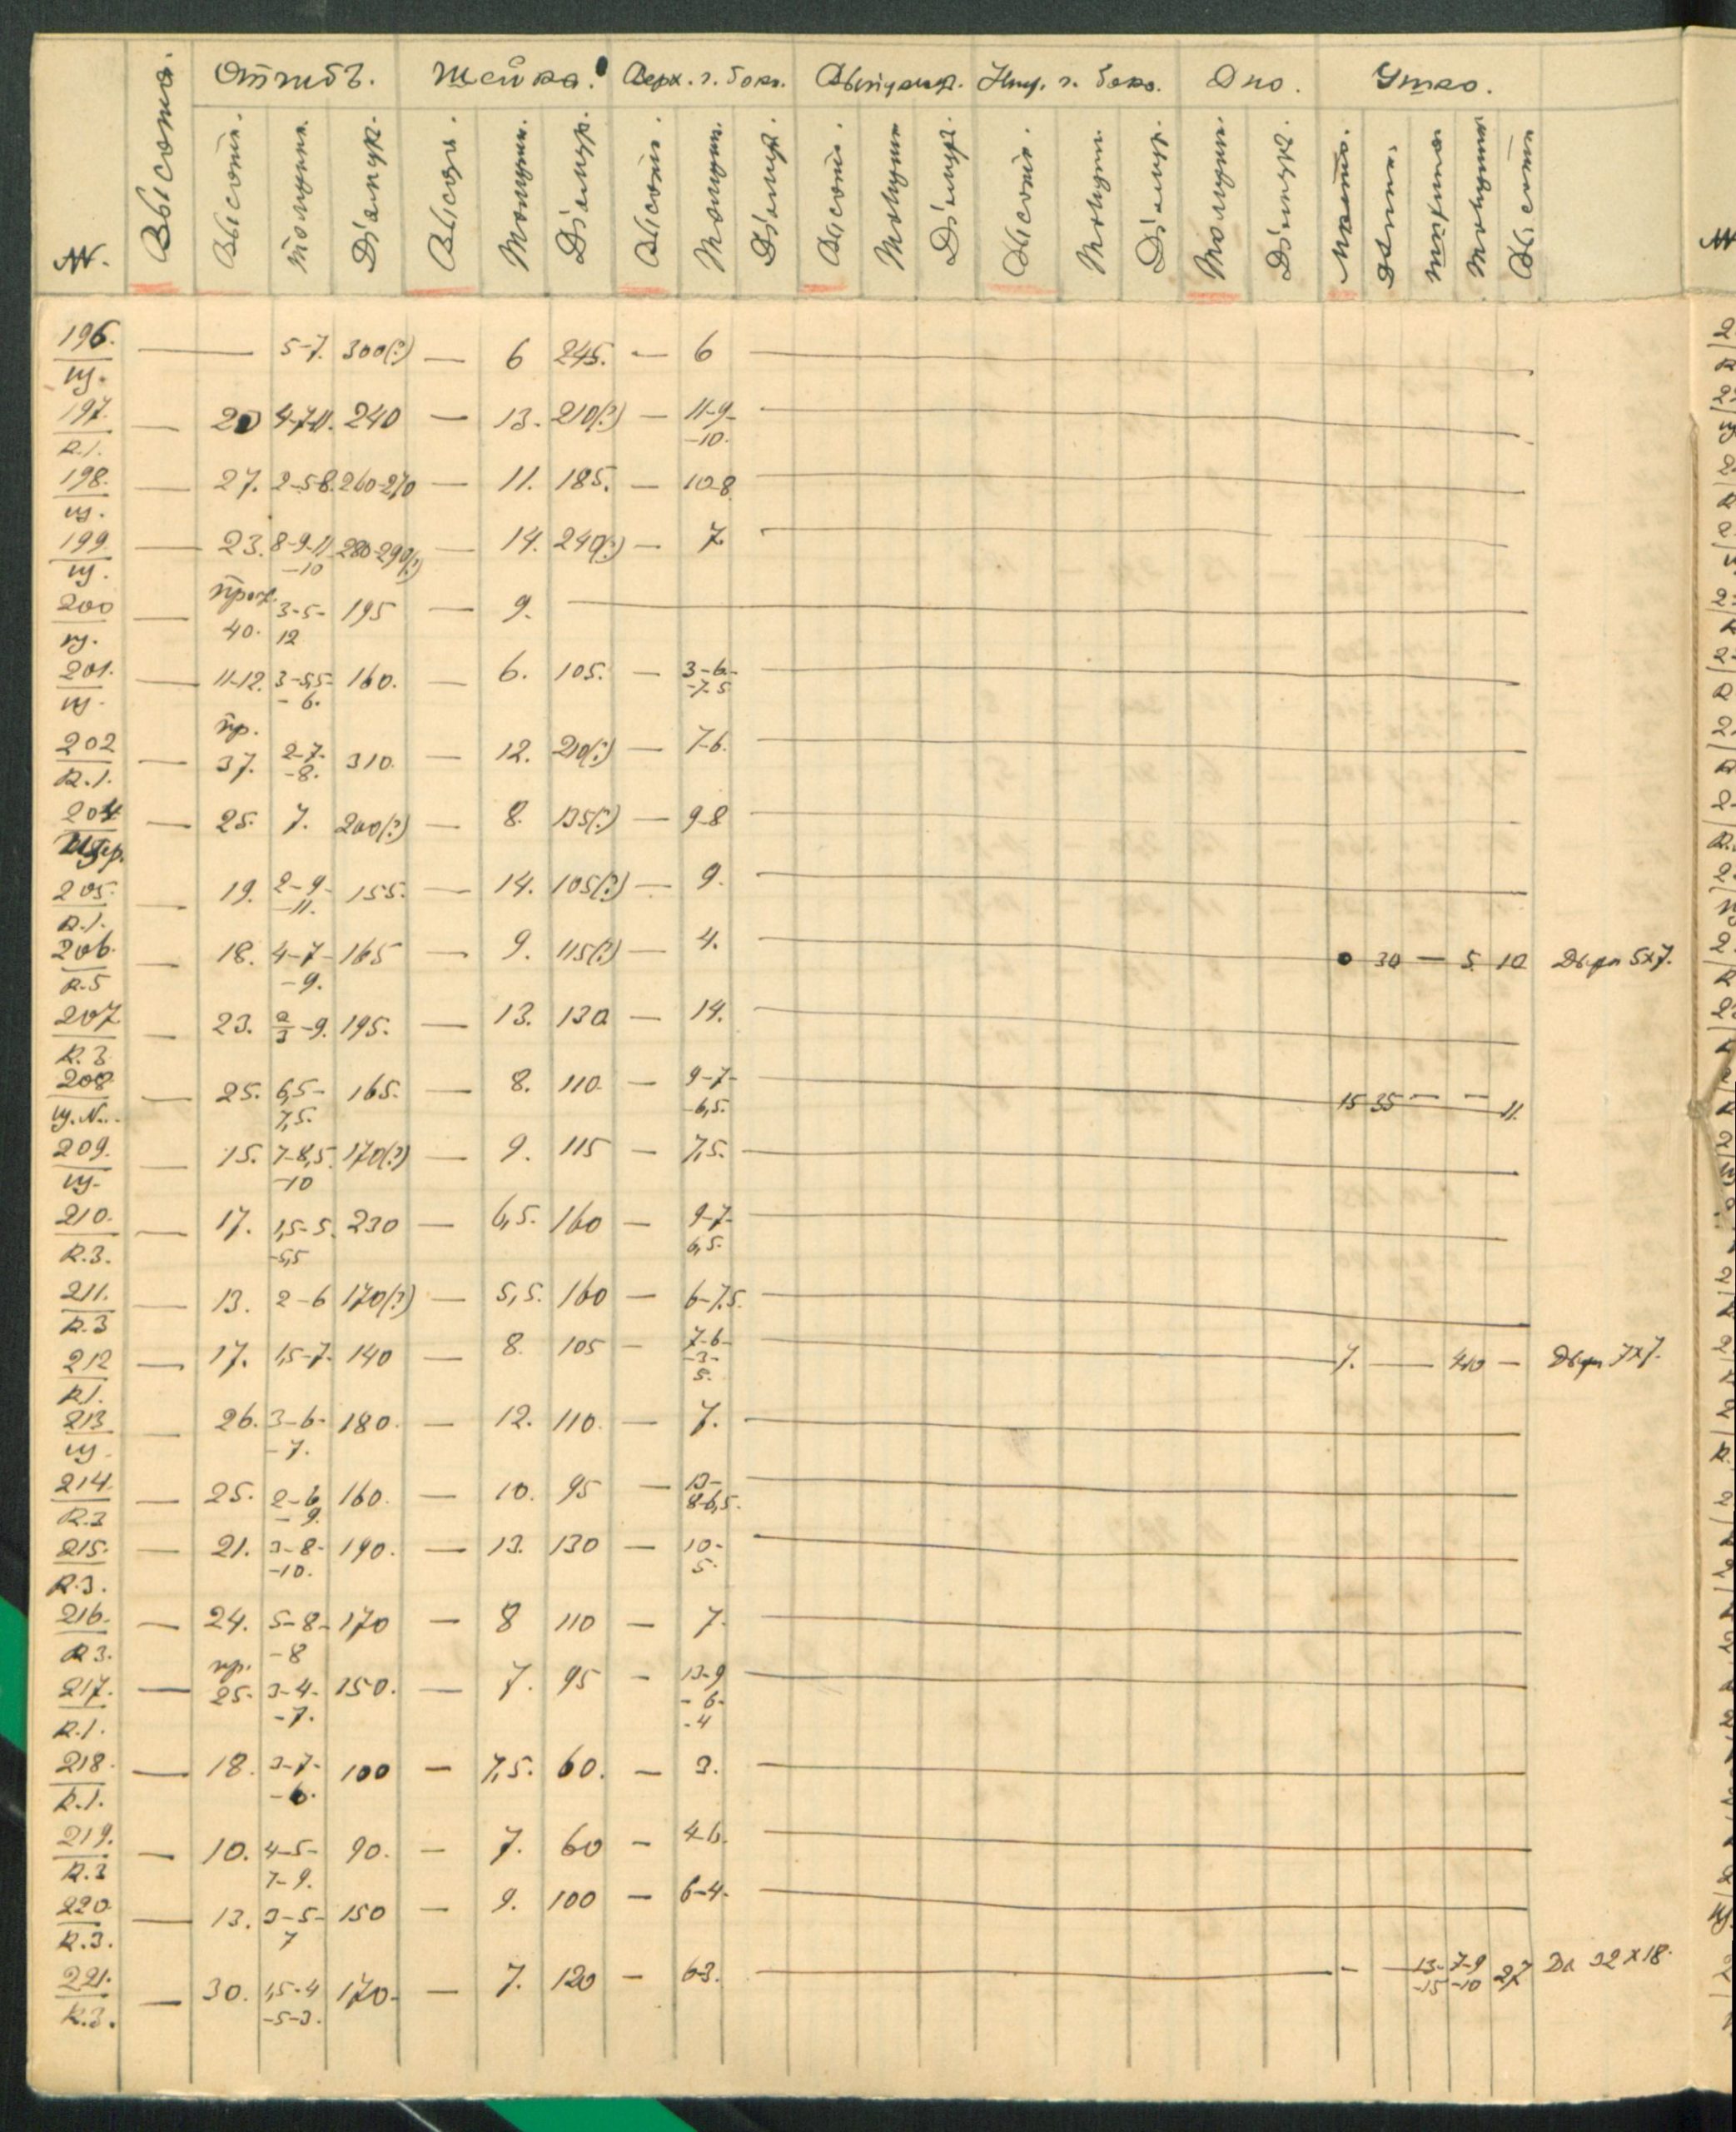 Отгибъ. Шейка. Верх. ч. бока. Выпукл. Ниж. ч. бока. Дно. Ушко.
№. Высота. Высота. Толщин. Діаметр. Высота. Толщин. Діаметр. Высота. Толщин. Діаметр. Высота. Толщин Діаметр. Высота. Толщин. Діаметр. Толщин. Діаметр. Длина. Толщин Высота
196. — 5-7. 300(?) — 6 245. — 6 —
щ.
197. — 20 4-7-11. 240 — 13. 210(?) — 11-9-
-10.
R.1.
198. — 27. 2-5-8. 260-270 — 11. 185. — 10-8 —
щ.
199. — 23. 8-9-11 280-290(?) — 14. 240(?) — 7. —
-10
щ.
200 — 3-5- 195 — 9. —
40. 12
щ.
201. — 11-12. 3-5,5- 160. — 6. 105. — 3-6- —
- 6. -7-5
щ.
пр.
202 — 37. 2-7- 310. — 12. 210(?) — 7-6. —
-8.
R.1.
204 — 25. 7. 200(?) — 8. 135(?) — 9-8 —
205. — 19. 2-9- 155. — 14. 105(?) — 9. —
-11.
R.1.
206. — 18. 4-7- 165 — 9. 115(?) — 4. — 30 — 5. 10 Дыра 5x7.
-9.
R.5
207. — 23. 2/3-9. 195. — 13. 130 — 14. —
R.3
208 — 25. 6,5- 165. — 8. 110. — 9-7- — 15 35 — — 11.
7,5. -6,5.
щ. N..
209. — 15. 7-8,5. 170(?) — 9. 115 — 7,5. —
-10
щ.
210. — 17. 1,5-5. 230 — 6,5. 160 — 9-7- —
-5,5 6,5.
R.3.
211. — 13. 2-6 170(?) — 5,5. 160 — 6-7,5. —
R.3
212 — 17. 1,5-7. 140 — 8. 105 — 7-6- — 7. — 4,10 — Дыра 7x7.
-3-
5.
R1.
213 — 26. 3-6- 180. — 12. 110. — 7. —
-7.
щ.
214. — 25. 2-6 160. — 10. 95 — 13- —
- 9. 8-6,5.
R.3
215. — 21. 3-8- 190. — 13. 130 — 10- —
-10. 5.
R.3.
216. — 24. 5-8- 170 — 8 110 — 7. —
-8
R3.
пр.
217. — 25. 3-4- 150. — 7. 95 — 13-9 —
-7. - 6-
-4
R.1.
218. — 18. 3-7- 100 — 7,5. 60. — 3. —
-6.
R.1.
219. — 10. 4-5- 90. — 7. 60 — 4-6. —
7-9.
R.3
220 — 13. 3-5- 150 — 9. 100 — 6-4. —
7
R.3.
221. — 30. 1,5-4 170- — 7. 120 — 6-3. — - — 13- 7-9 27 Да 32x18.
-5-3. -15 -10
R.3.